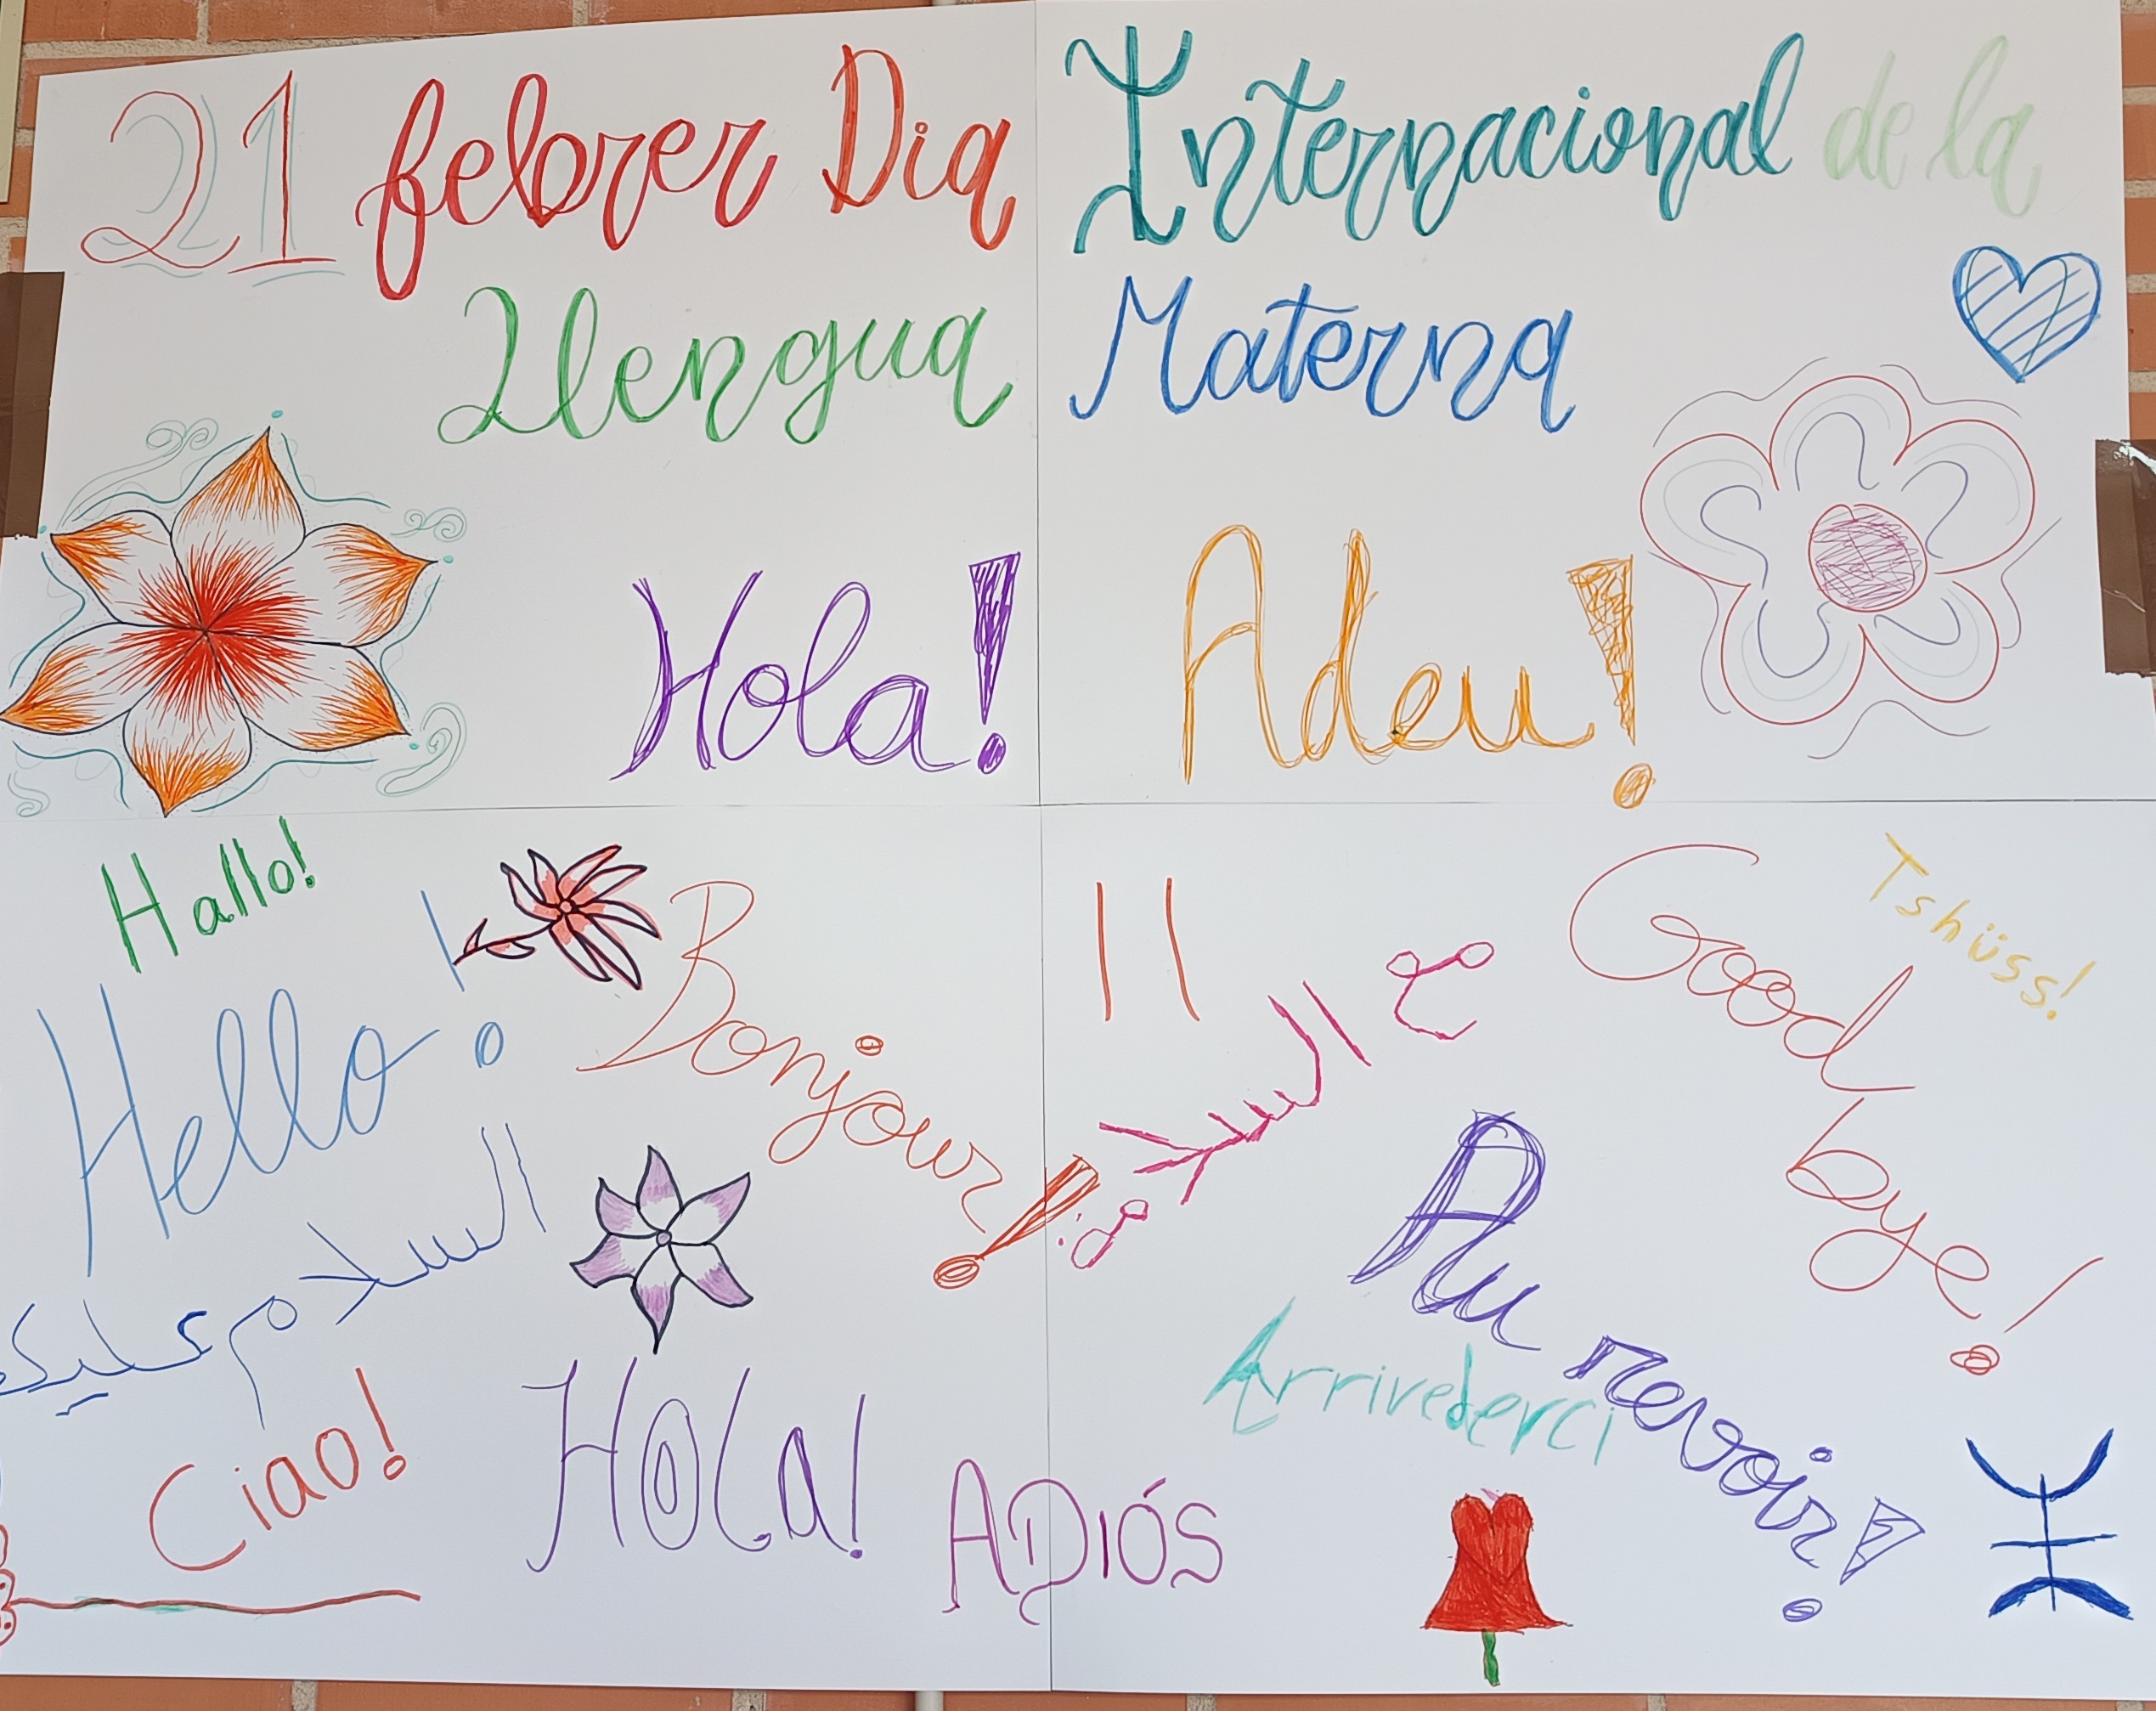 21 febrer Dia Internacional de la
Llengua Materna
Hola! Adeu!
Hallo!
Hello!
Bonjour!
السلام عليك
Ciao!
HOLa!
Good bye!
Tshüss!
مع السلامة
Au revoir!
Arrivederci
ADIÓS
ⵣ